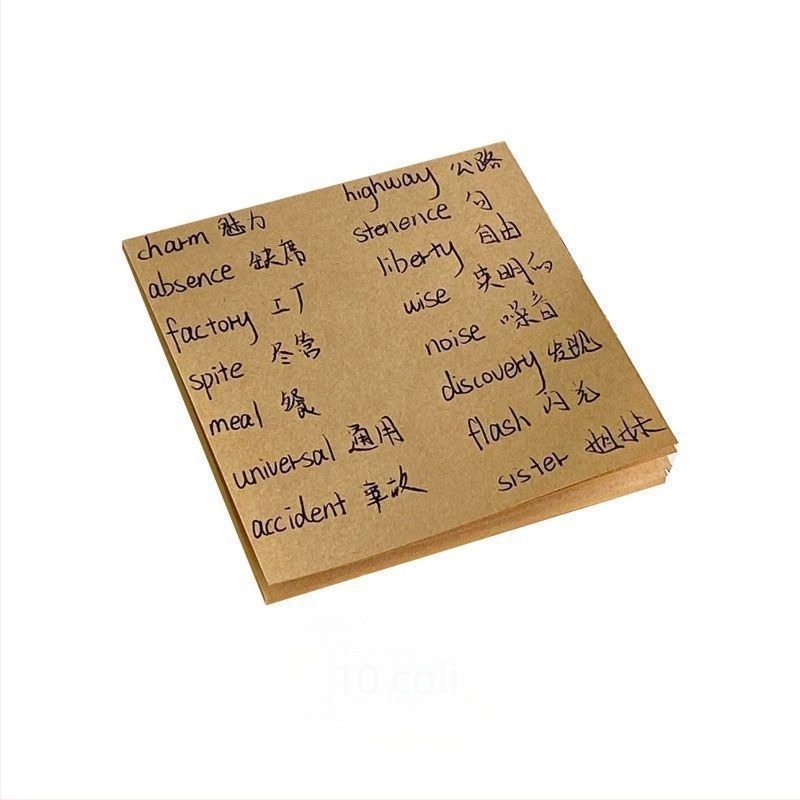 charm 魅力
absence 缺席
factory 工厂
spite 尽管
meal 餐
universal 通用
accident 事故
highway 公路
stenence 句
liberty 自由
wise 英明的
noise 噪音
discovery 发现
flash 闪光
sister 姐妹
10 coli